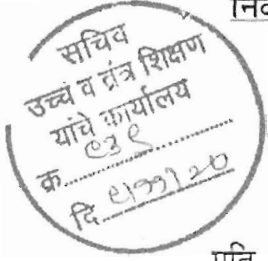 सचिव
उच्च व तंत्र शिक्षण
यांचे कार्यालय
क्र. ८३९
दि. ९/११/२०